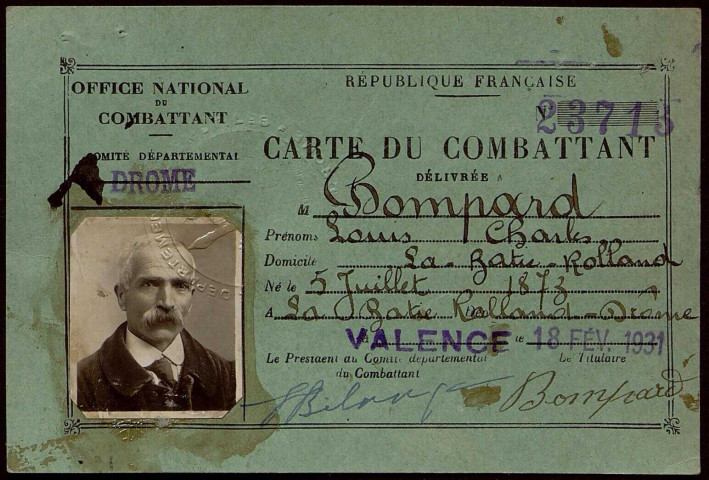 OFFICE NATIONAL
DU
COMBATTANT
COMITÉ DÉPARTEMENTAL
DROME
RÉPUBLIQUE FRANÇAISE
N° 23715
CARTE DU COMBATTANT
DÉLIVRÉE A
M Bompard
Prénoms Louis Charles
Domicile La-Batie-Rolland
Né le 5 Juillet 1873
A La Batie Rolland-Drôme
VALENCE le 18 FÉV. 1931
Le Président du Comité départemental
du Combattant
Le Titulaire
Bompard